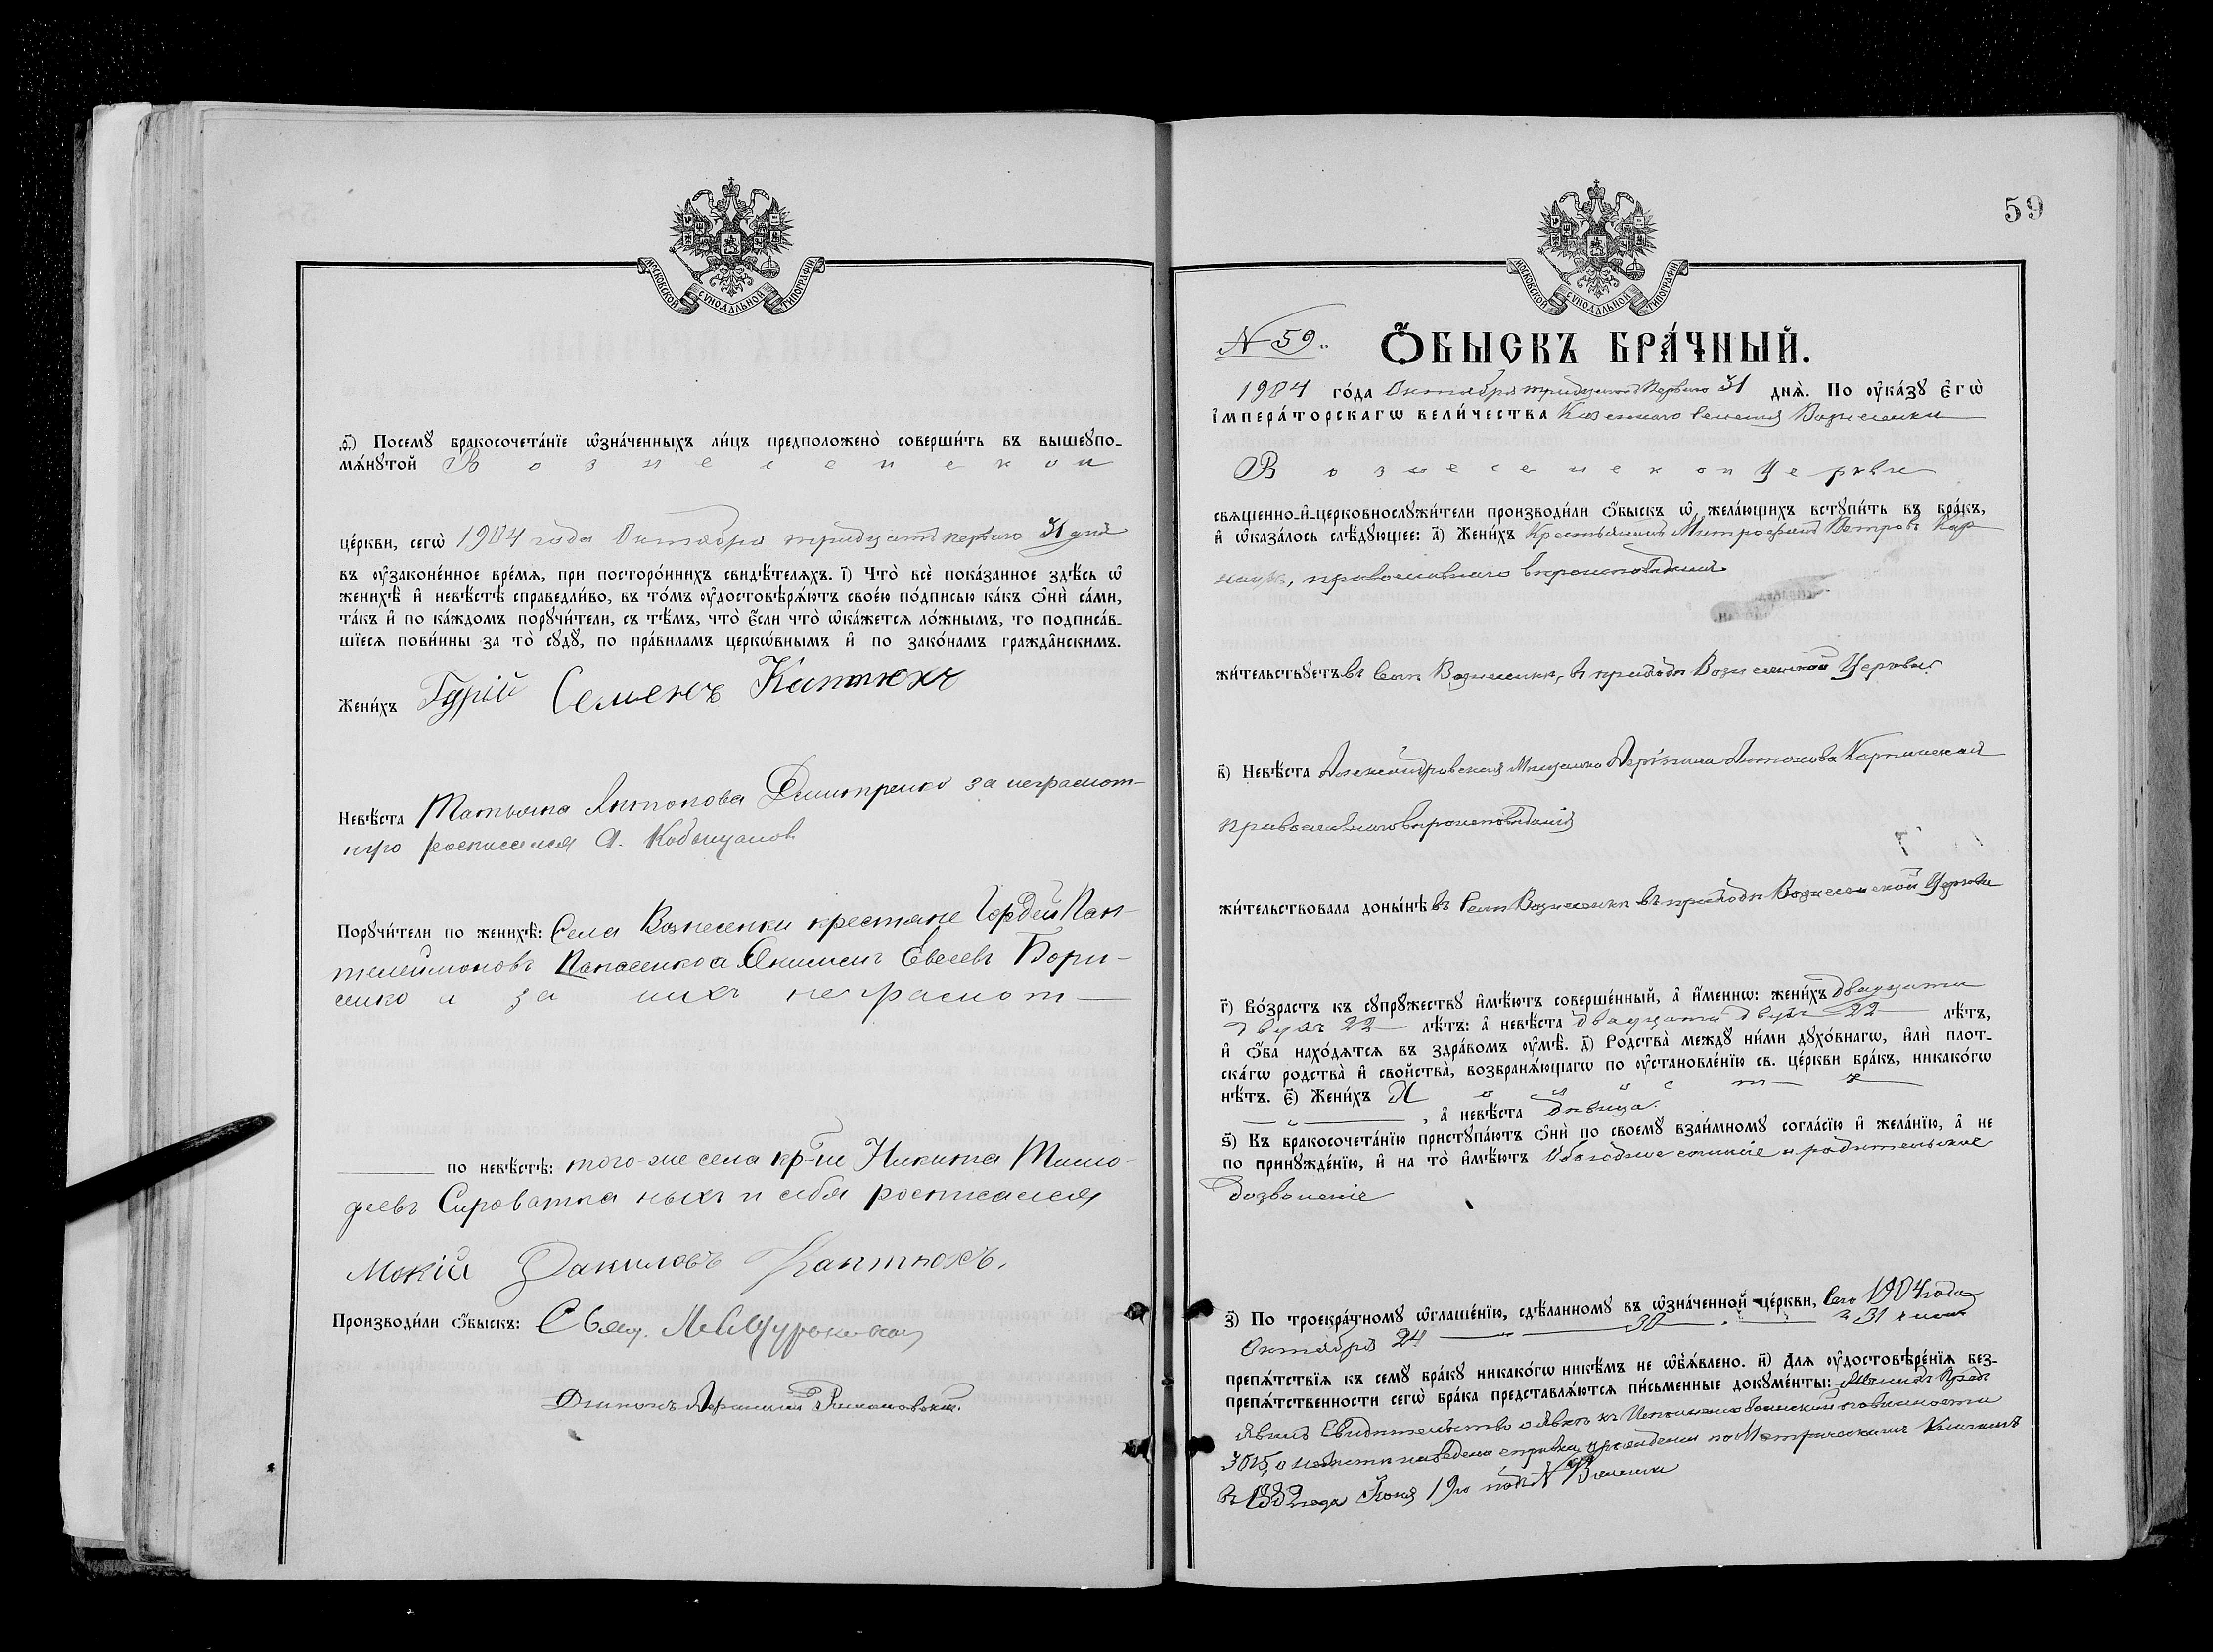 МОСКОВСКОЙ СѴНОДАЛЬНОЙ ТИПОГРАФІИ
ѳ҃) Посемꙋ̀ бракосочета́нїе ѡ҆зна́ченныхъ ли́цъ предположено̀ соверши́ть въ вышеꙋпо-
мѧ́нꙋтой Вознесенской
це́ркви, сегѡ̀ 1904 года Октября тридцать первого 31 дня
въ ᲂу҆зако́ненное вре́мѧ, при посторо́ннихъ свидѣ́телѧхъ. і҃) Что̀ всѐ пока́занное здѣ́сь ѡ҆
женихѣ̀ и҆ невѣ́стѣ справедли́во, въ то́мъ ᲂу҆достовѣрѧ́ютъ свое́ю по́дписью ка́къ ѻ҆нѝ са́ми,
та́къ и҆ по ка́ждомъ порꙋчи́тели, съ тѣ́мъ, что̀ є҆́сли что̀ ѡ҆ка́жетсѧ ло́жнымъ, то подписа́в-
шїесѧ пови́нны за то̀ сꙋдꙋ̀, по пра́виламъ церко́внымъ и҆ по зако́намъ гражда́нскимъ.
Жени́хъ Гурій Семенъ Каптюхъ
Невѣ́ста Татьяна Антонова Дмитренко за неграмот-
ную росписался А.
Порꙋчи́тели по женихѣ̀: Села Вознесенки крестяне Гордей Пан-
телеймоновъ Панасенко а Онисимъ Евсеевъ Бори-
сенко а за нихъ неграмот
по невѣ́стѣ: того-же села кр-не Никита Тимо-
феевъ Сироватка ныхъ и себя росписался
Мокій Даниловъ Каптюхъ.
Производи́ли ѻ҆́быскъ: Свящ.
Діаконъ
59
МОСКОВСКОЙ СѴНОДАЛЬНОЙ ТИПОГРАФІИ
N 59.
Ѻ҆́БЫСКЪ БРА́ЧНЫЙ.
1904 го́да Октября тридцать первого 31 днѧ̀. По ᲂу҆ка́зꙋ є҆гѡ̀
і҆мпера́торскагѡ вели́чества Казенного селения Вознесенки
Вознесенской Церкви
свѧще́нно-и҆-церковнослꙋжи́тели производи́ли ѻ҆́быскъ ѡ҆ жела́ющихъ встꙋпи́ть въ бра́къ,
и҆ ѡ҆каза́лось слѣ́дꙋющее: а҃) Жени́хъ Крестьянинъ Митрофанъ Петровъ Кар
наухъ, православнаго вероисповеданія
жи́тельствꙋетъ въ селе Вознесенке, въ приходе Вознесенской Церкви
в҃) Невѣ́ста Александровская Мещанка Антонова
православнаго вероисповеданія
жи́тельствовала доны́нѣ въ Селе Вознесенке въ приходе Вознесенской Церкви
г҃) Во́зрастъ къ сꙋпрꙋ́жествꙋ и҆мѣ́ютъ соверше́нный, а҆ и҆́меннѡ: жени́хъ двадцати
двухъ 22 лѣ́тъ: а҆ невѣ́ста двадцати двухъ 22 лѣ́тъ,
и҆ ѻ҆́ба нахо́дѧтсѧ въ здра́вомъ ᲂу҆мѣ̀. д҃) Родства̀ междꙋ ни́ми дꙋхо́внагѡ, и҆лѝ плот-
ска́гѡ родства̀ и҆ свойства̀, возбранѧ́ющагѡ по ᲂу҆становле́нїю св. це́ркви бра́къ, никако́гѡ
нѣ́тъ. є҃) Жени́хъ Холостъ
, а҆ невѣ́ста девица.
ѕ҃) Къ бракосочета́нїю пристꙋпа́ютъ ѻ҆нѝ по своемꙋ̀ взаи́мномꙋ согла́сїю и҆ жела́нїю, а҆ не
по принꙋжде́нїю, и҆ на то̀ и҆мѣ́ютъ Обоюдное согласіе и родительское
дозволеніе
з҃) По троекра́тномꙋ ѡ҆глаше́нїю, сдѣ́ланномꙋ въ ѡ҆зна́ченной це́ркви, Сего 1904 года
Октября 24 30 и 31 числа
препѧ́тствїѧ къ семꙋ̀ бра́кꙋ никако́гѡ никѣ́мъ не ѡ҆б̾ѧ́влено. и҃) Длѧ ᲂу҆достовѣре́нїѧ без-
препѧ́тственности сегѡ̀ бра́ка представлѧ́ютсѧ пи́сьменные докꙋме́нты: Женихъ Пред
явилъ Свидетельство о явке къ Исполненію воинской повинности
3015, о невесте наведена справка о рожденіи по Метрическимъ Книгамъ
въ 1882 года Іюня 19го подъ N